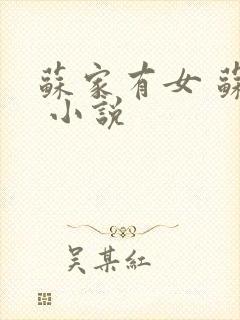 蘇家有女 蘇
小說
吴某紅